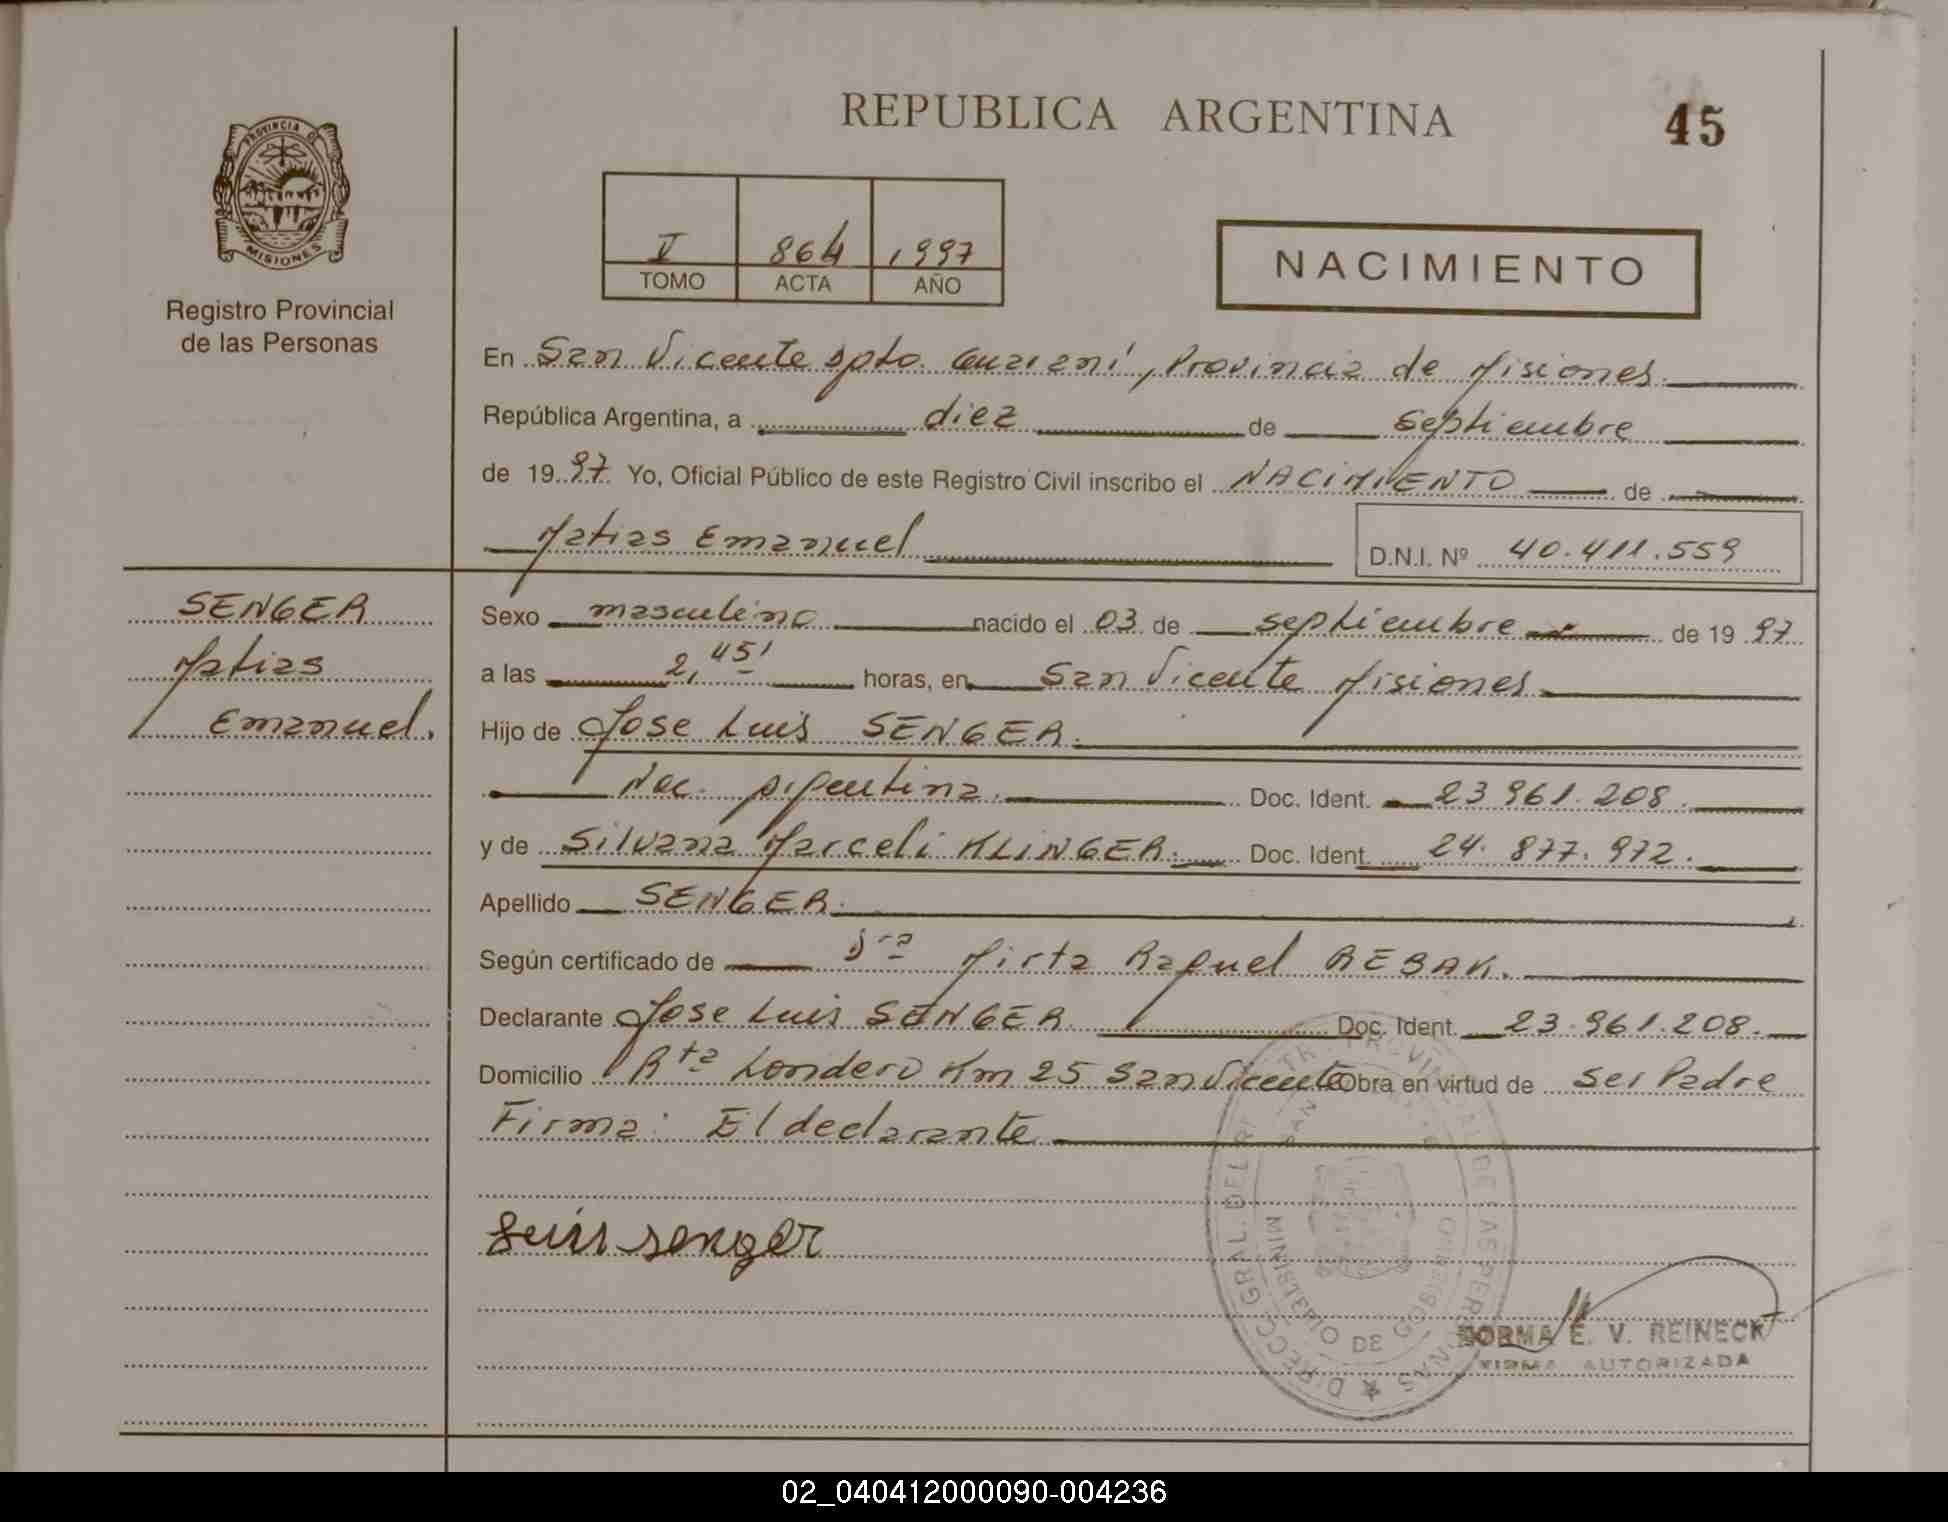 REPUBLICA ARGENTINA
45
PROVINCIA DE
MISIONES
Registro Provincial
de las Personas
V 864 1997
TOMO ACTA AÑO
NACIMIENTO
En San Vicente Dpto. Guarani, Provincia de Misiones
República Argentina, a diez de septiembre
de 19 97 Yo, Oficial Público de este Registro Civil inscribo el NACIMIENTO de
Matias Emanuel
D.N.I. Nº 40.411.559
SENGER
Matias
Emanuel.
Sexo masculino nacido el 03 de septiembre de 19 97
a las 2,45' horas, en San Vicente Misiones
Hijo de Jose Luis SENGER.
Nac. Argentina. Doc. Ident. 23 961.208.
y de Silvana Marceli KLINGER. Doc. Ident. 24.877.972.
Apellido SENGER.
Según certificado de Dra Mirta Raquel
Declarante Jose Luis SENGER Doc. Ident. 23.961.208.
Domicilio Rta Londero Km 25 San Vicente Obra en virtud de ser Padre
Firma: El declarante
Luis senger
DIRECC. GRAL. DEL DE LAS PERSONAS
MINISTERIO DE GOBIERNO
NORMA E. V. REINECK
FIRMA AUTORIZADA
02_040412000090-004236